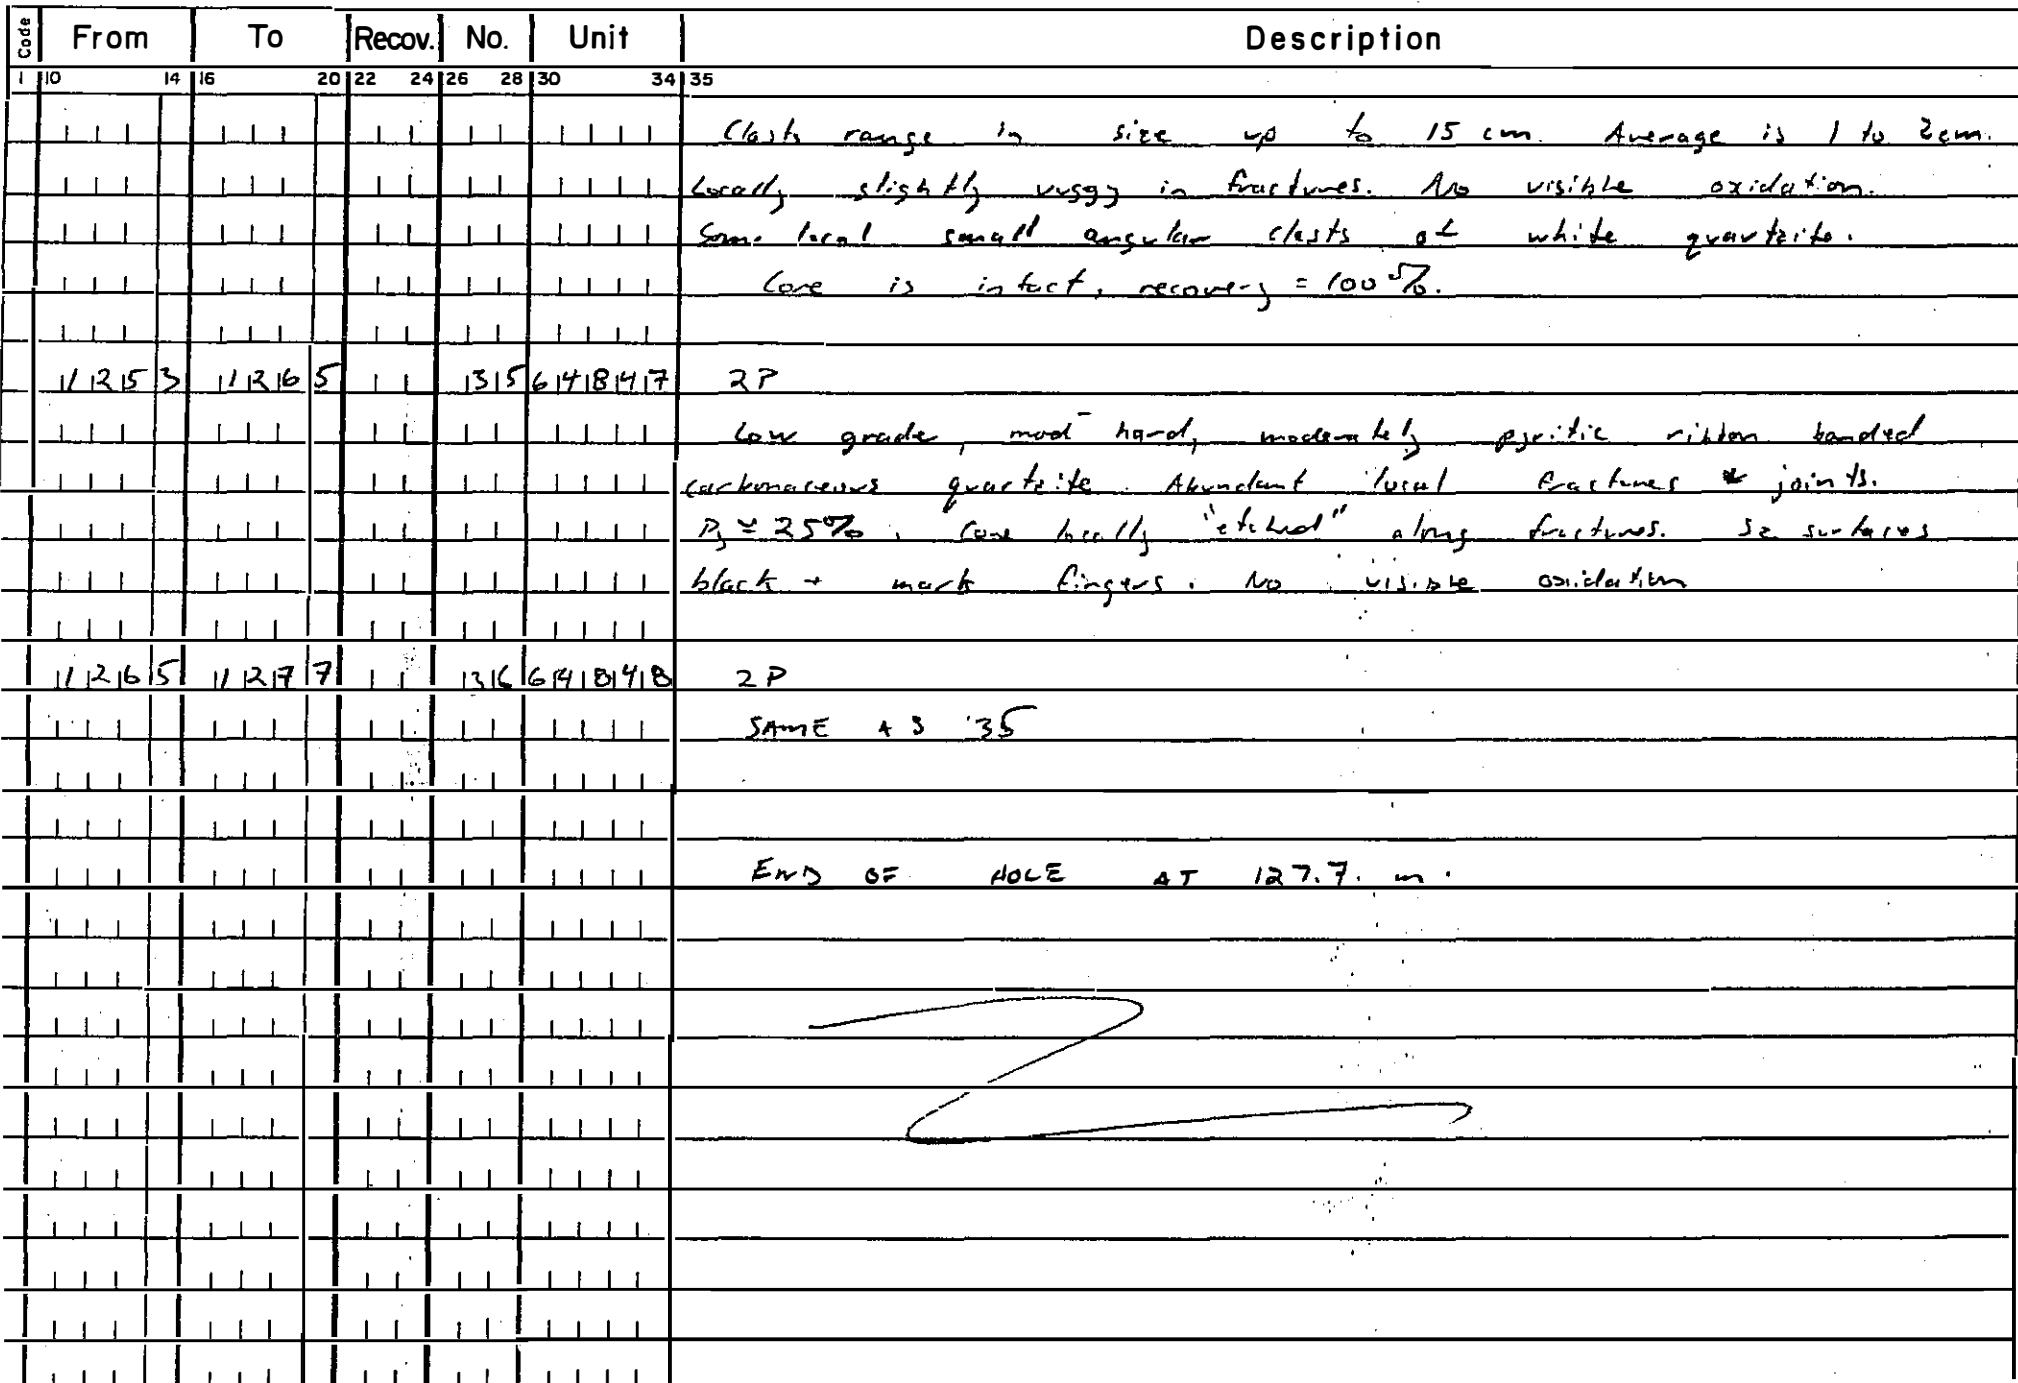 Code From To Recov. No. Unit Description
1 10 14 16 20 22 24 26 28 30 34 35
Clasts range in size up to 15 cm. Average is 1 to 2cm.
Locally slightly vuggy in fractures. No visible oxidation.
Some local small angular clasts of white quartzite.
Core is intact, recovery = 100%.
125 3 126 5 35 64847 2P
Low grade, mod hard, moderately pyritic ribbon banded
carbonaceous quartzite. Abundant local fractures + joints.
Py ≃ 25%. Core locally "etched" along fractures. S2 surfaces
black + mark fingers. No visible oxidation
126 5 127 7 36 64848 2P
SAME AS 35
END OF HOLE AT 127.7. m.